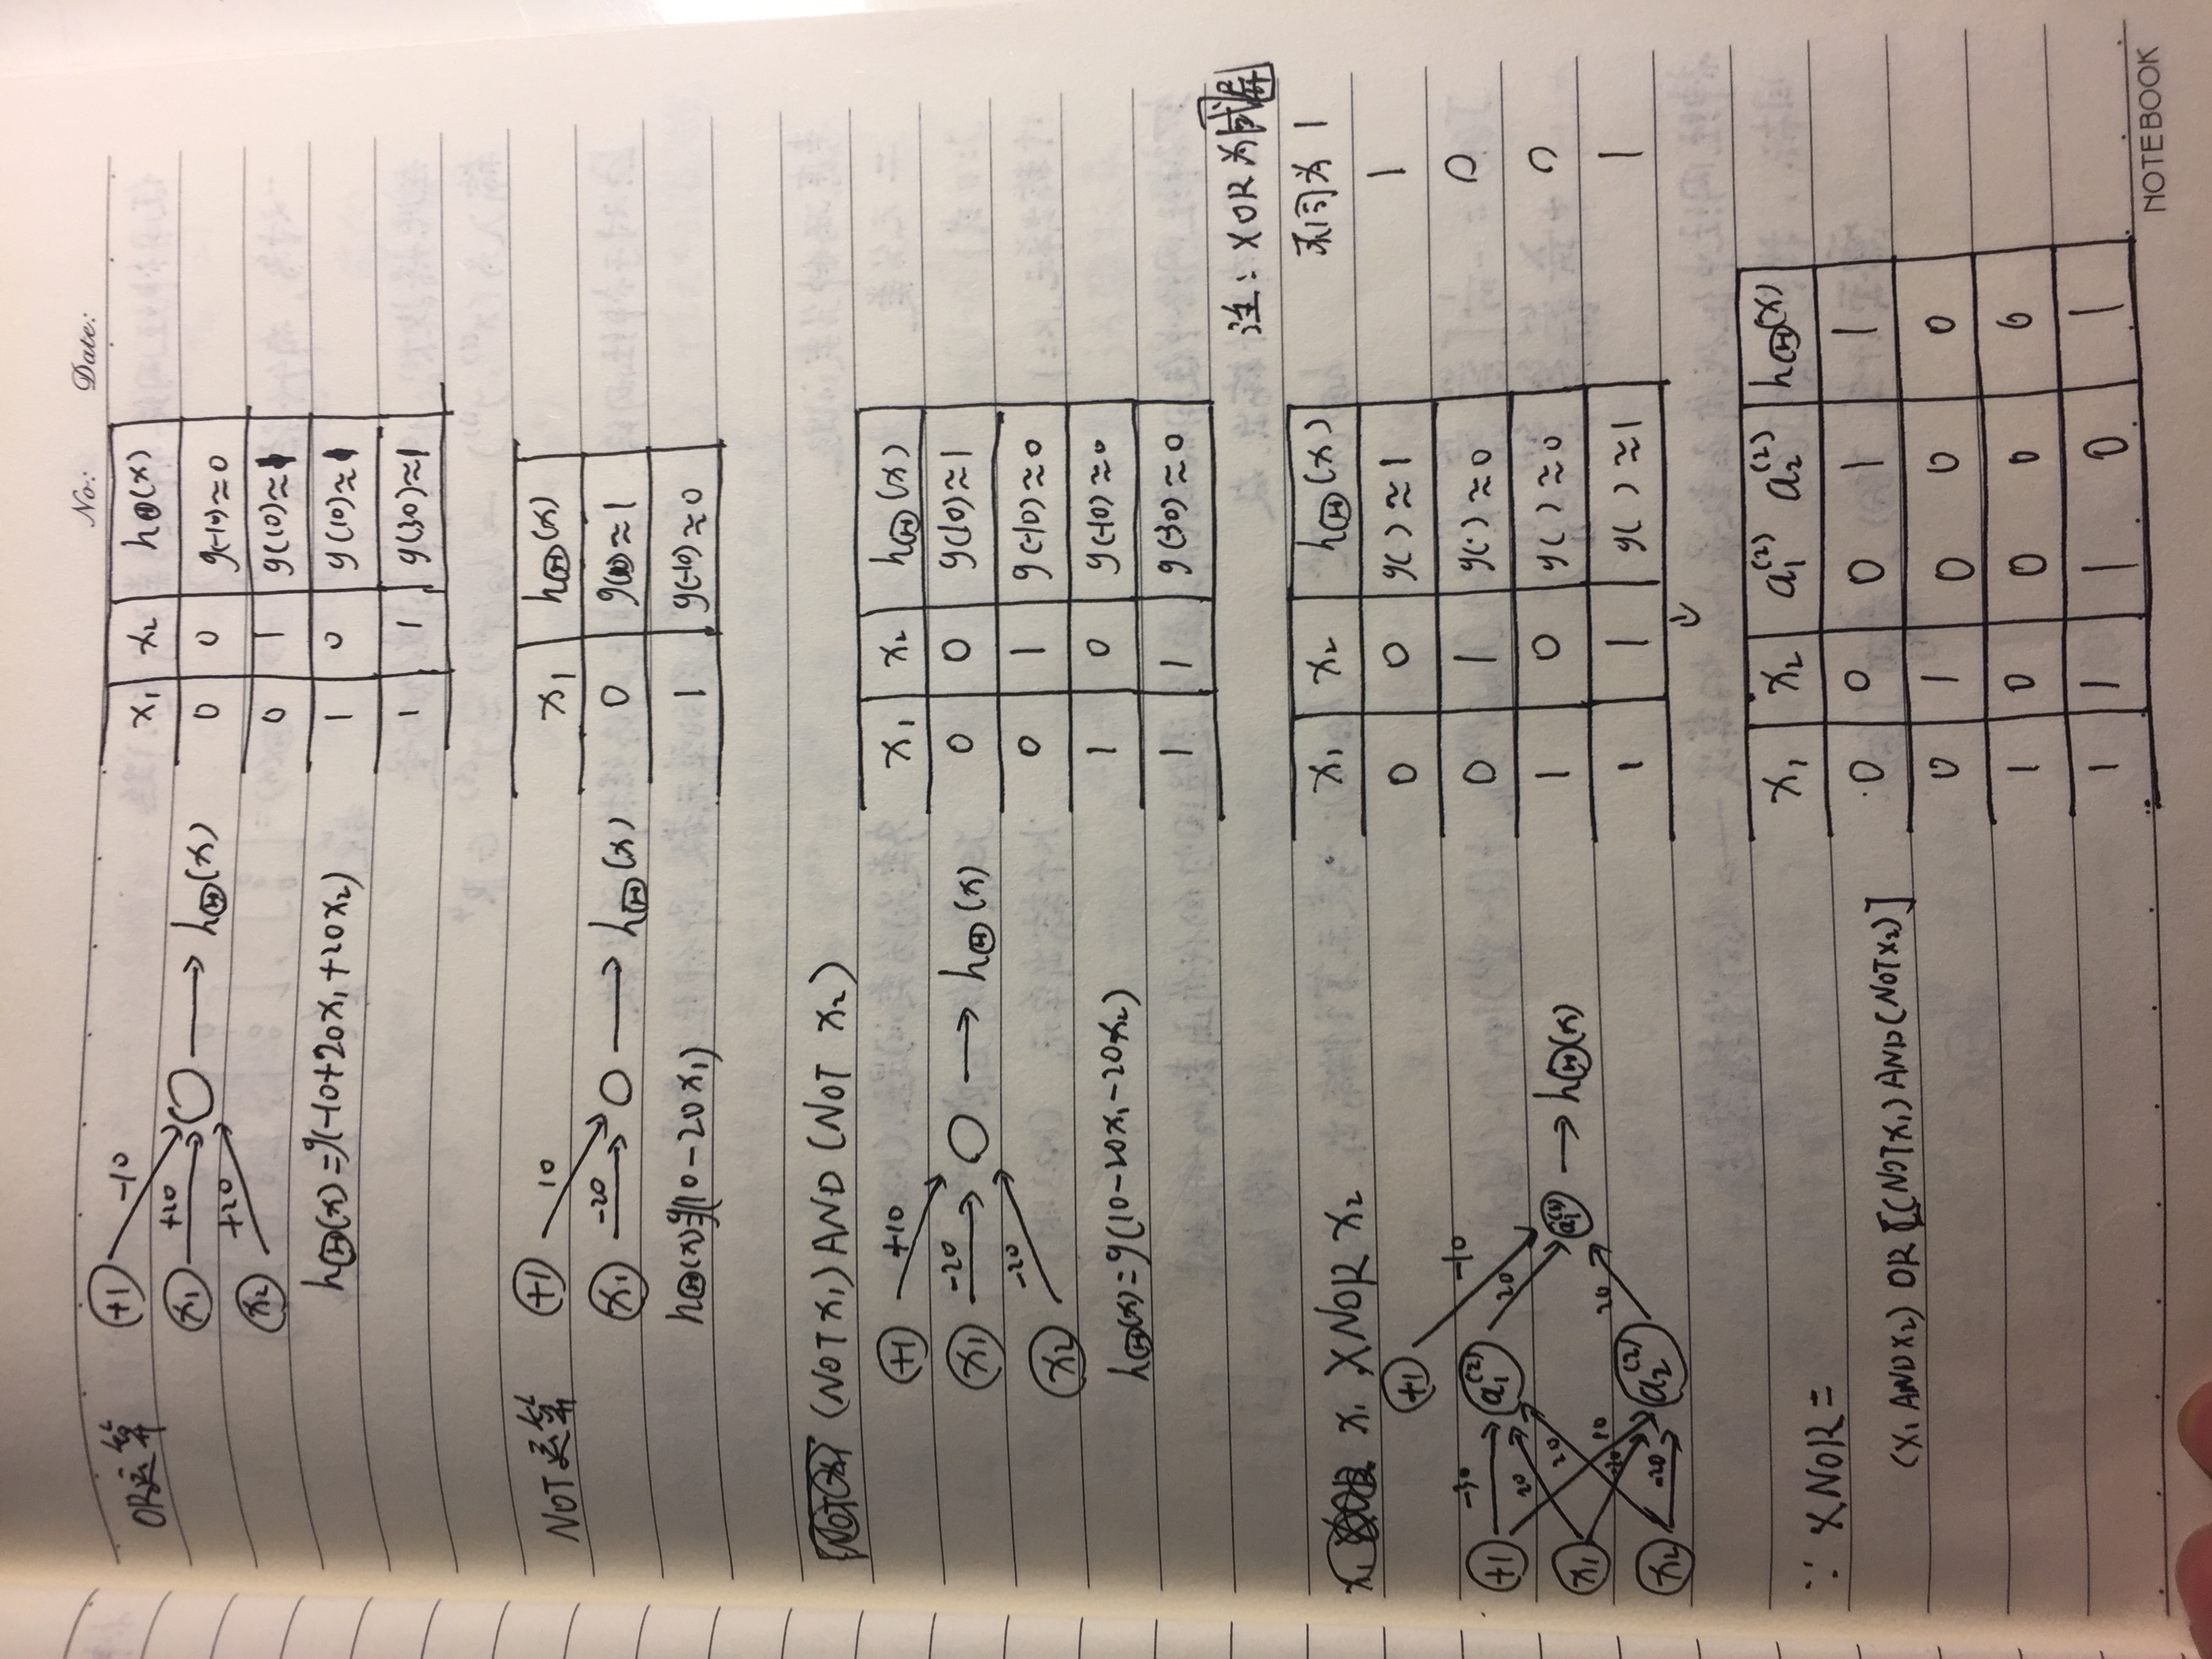 No: Date:
OR运算
+1 -10
x₁ +20 → h_Θ(x)
x₂ +20
h_Θ(x)=g(-10+20x₁+20x₂)
x₁ x₂ h_Θ(x)
0 0 g(-10)≈0
0 1 g(10)≈1
1 0 g(10)≈1
1 1 g(30)≈1
NOT运算
+1 10
x₁ -20 → h_Θ(x)
h_Θ(x)=g(10-20x₁)
x₁ h_Θ(x)
0 g(10)≈1
1 g(-10)≈0
(NOT x₁) AND (NOT x₂)
+1 +10
x₁ -20 → h_Θ(x)
x₂ -20
h_Θ(x)=g(10-20x₁-20x₂)
x₁ x₂ h_Θ(x)
0 0 g(10)≈1
0 1 g(-10)≈0
1 0 g(-10)≈0
1 1 g(-30)≈0
注: XOR为
不同为 1
1
0
0
1
x₁ x₁ XNOR x₂
+1 -10
+1 -30 a₁⁽²⁾ 20
x₁ 20 20 a₁⁽³⁾ → h_Θ(x)
-20 10 20
x₂ -20 a₂⁽²⁾
x₁ x₂ h_Θ(x)
0 0 g( )≈1
0 1 g( )≈0
1 0 g( )≈0
1 1 g( )≈1
↓
∵ XNOR =
(x₁ AND x₂) OR [(NOT x₁) AND (NOT x₂)]
x₁ x₂ a₁⁽²⁾ a₂⁽²⁾ h_Θ(x)
0 0 0 1 1
0 1 0 0 0
1 0 0 0 0
1 1 1 0 1
NOTEBOOK